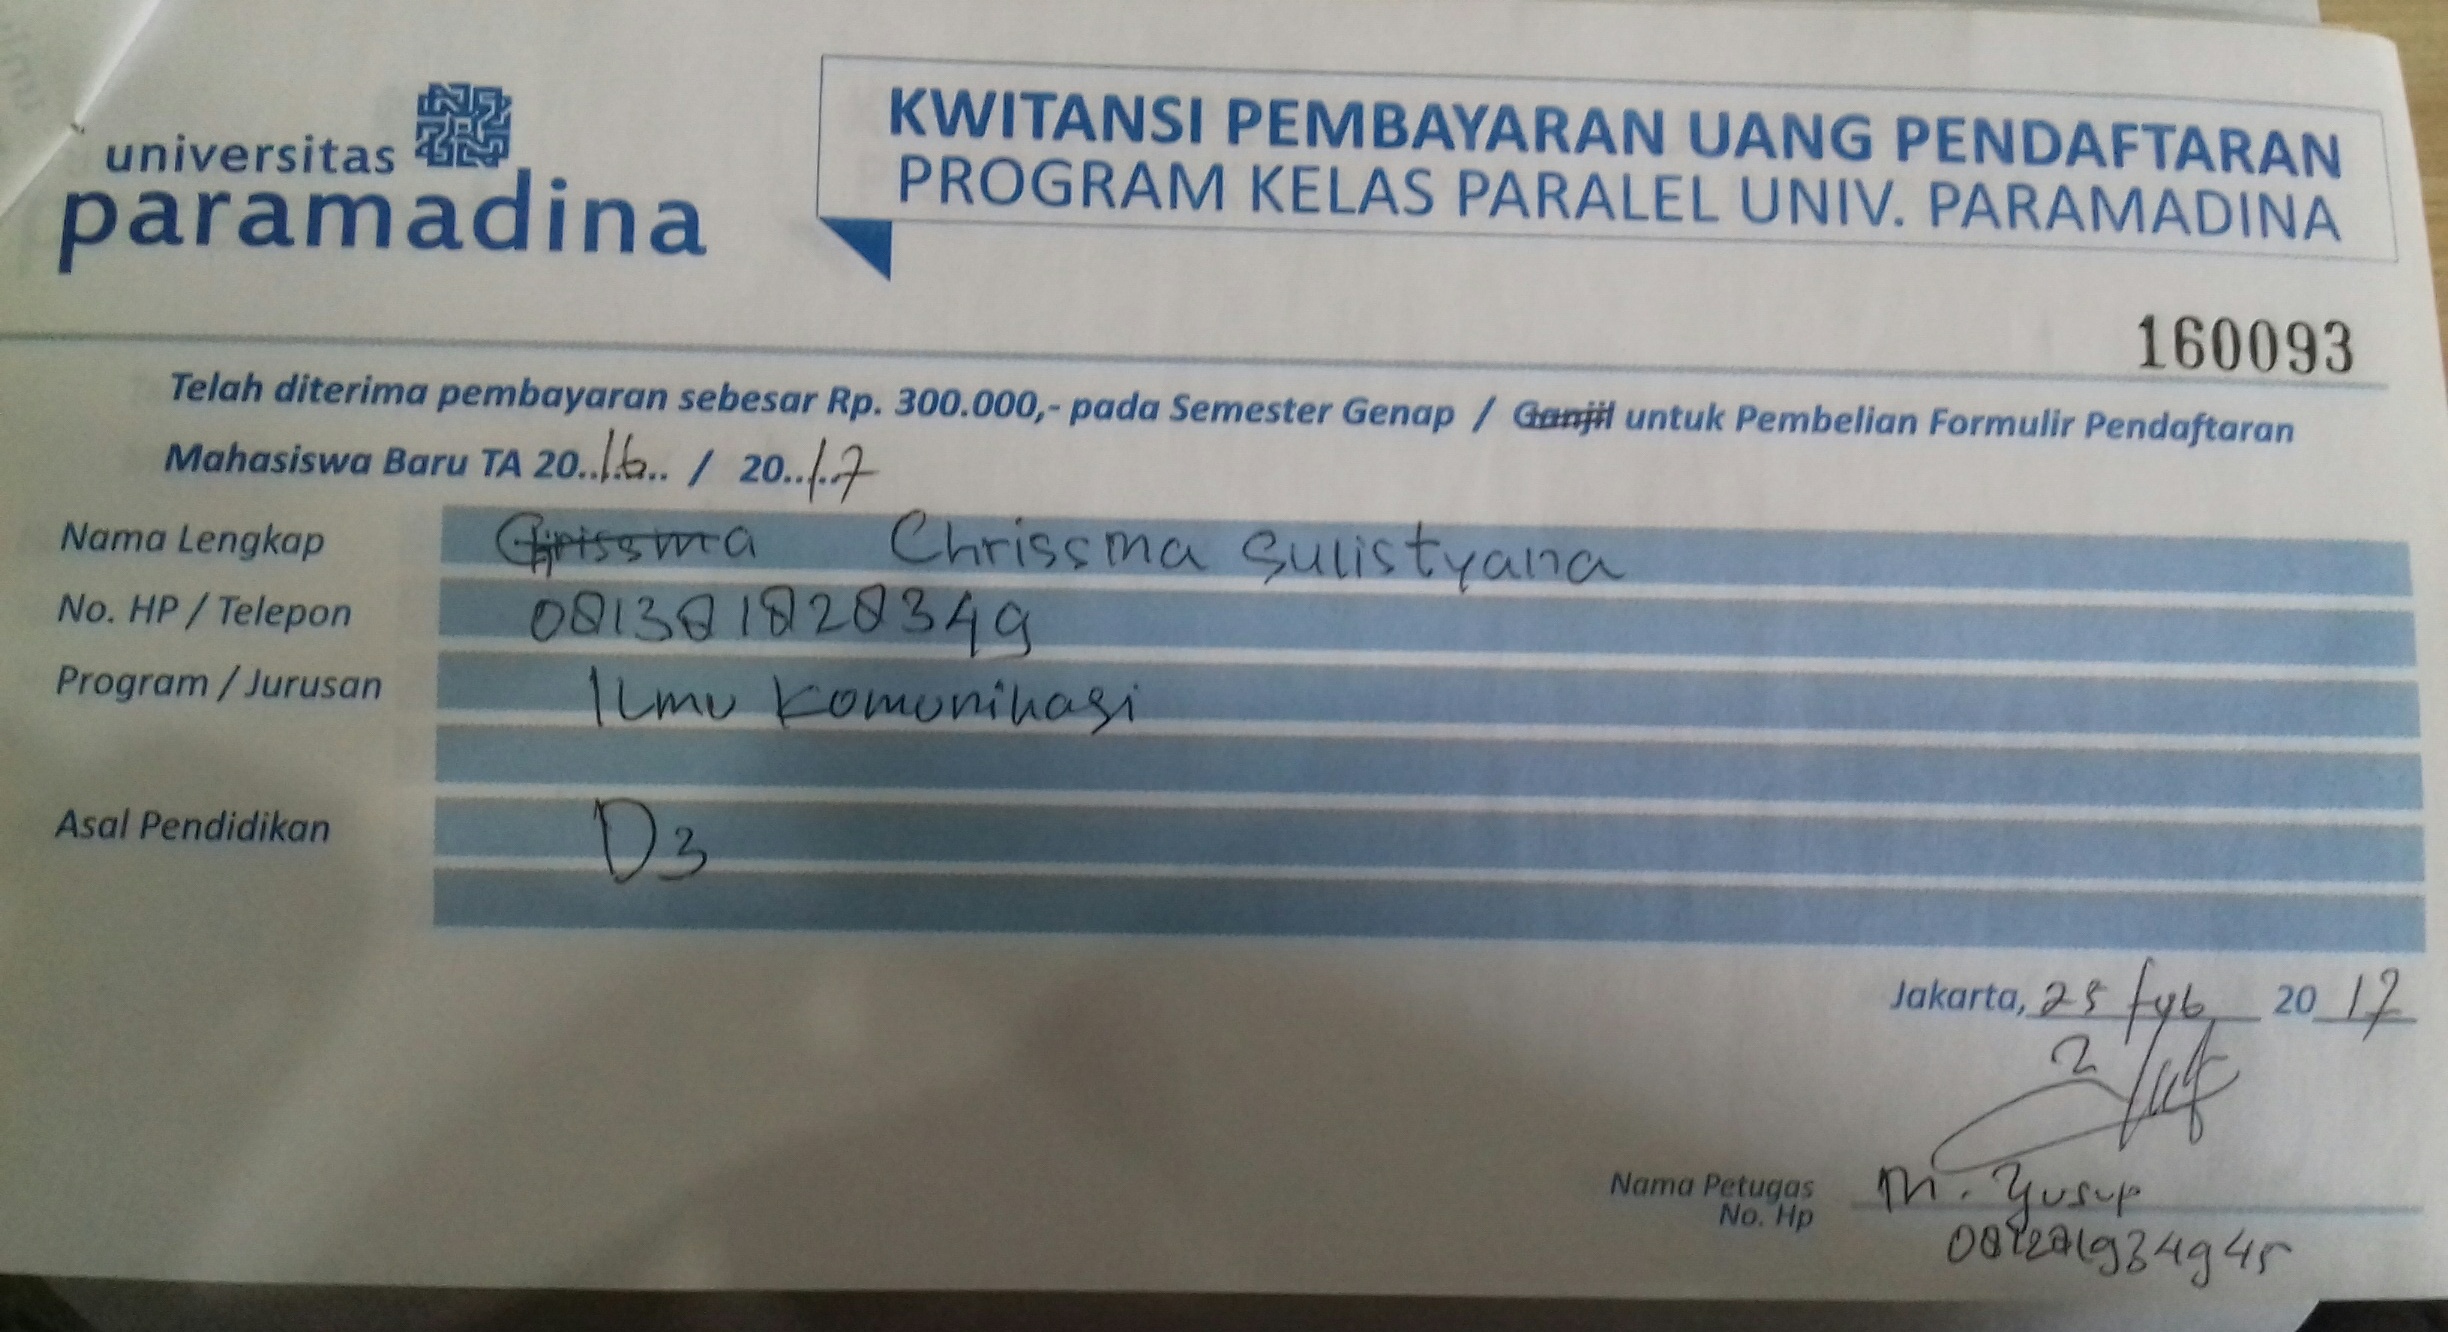 universitas
paramadina
KWITANSI PEMBAYARAN UANG PENDAFTARAN
PROGRAM KELAS PARALEL UNIV. PARAMADINA
160093
Telah diterima pembayaran sebesar Rp. 300.000,- pada Semester Genap / Ganjil untuk Pembelian Formulir Pendaftaran
Mahasiswa Baru TA 20..16.. / 20..17
Nama Lengkap Chrissma Sulistyana
No. HP / Telepon 081381828349
Program / Jurusan Ilmu Komunikasi
Asal Pendidikan D3
Jakarta, 25 20 17
Nama Petugas M. Yusup
No. Hp